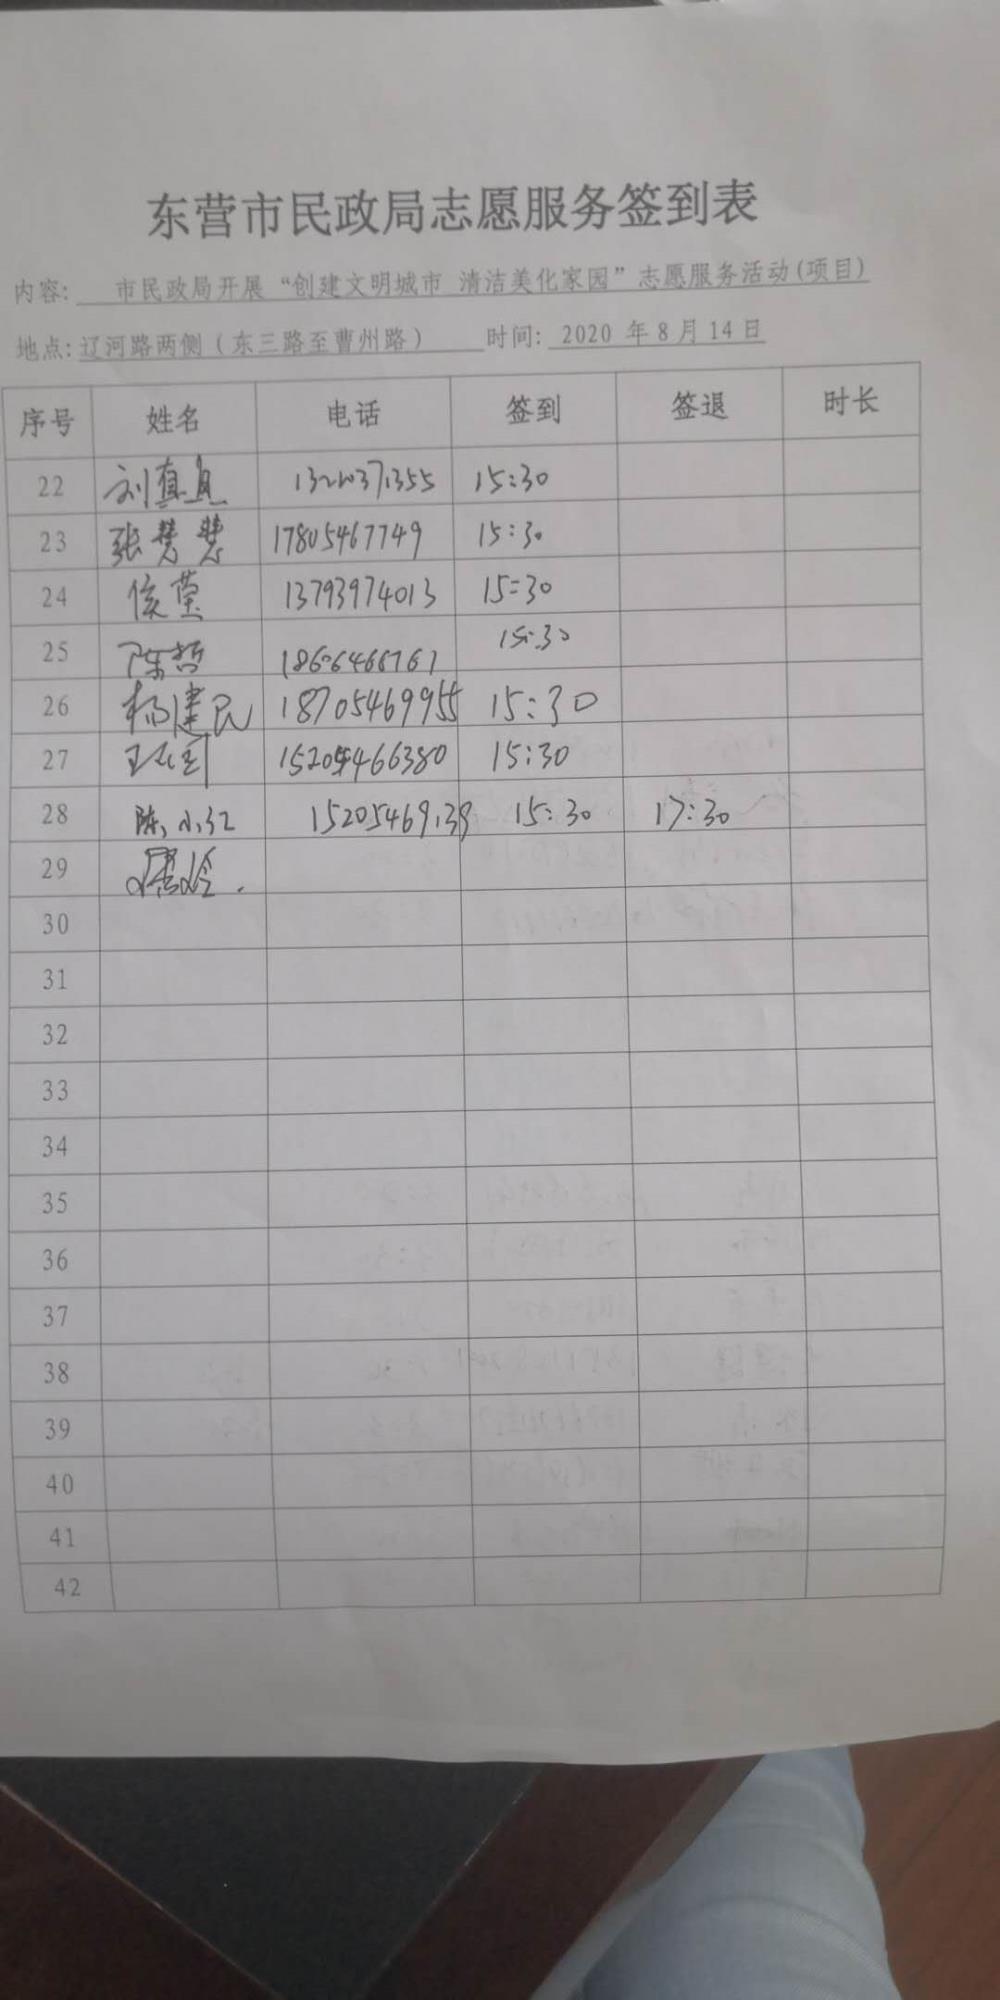 东营市民政局志愿服务签到表
内容: 市民政局开展“创建文明城市 清洁美化家园”志愿服务活动(项目)
地点: 辽河路两侧（东三路至曹州路） 时间: 2020 年 8 月 14 日
序号 姓名 电话 签到 签退 时长
22 刘真真 15:30
23 张慧慧 17805467749 15:30
24 侯莹 13793974013 15:30
25 陈哲 15:30
26 杨建民 18705469955 15:30
27 15205466380 15:30
28 陈小红 15205469139 15:30 17:30
29
30
31
32
33
34
35
36
37
38
39
40
41
42